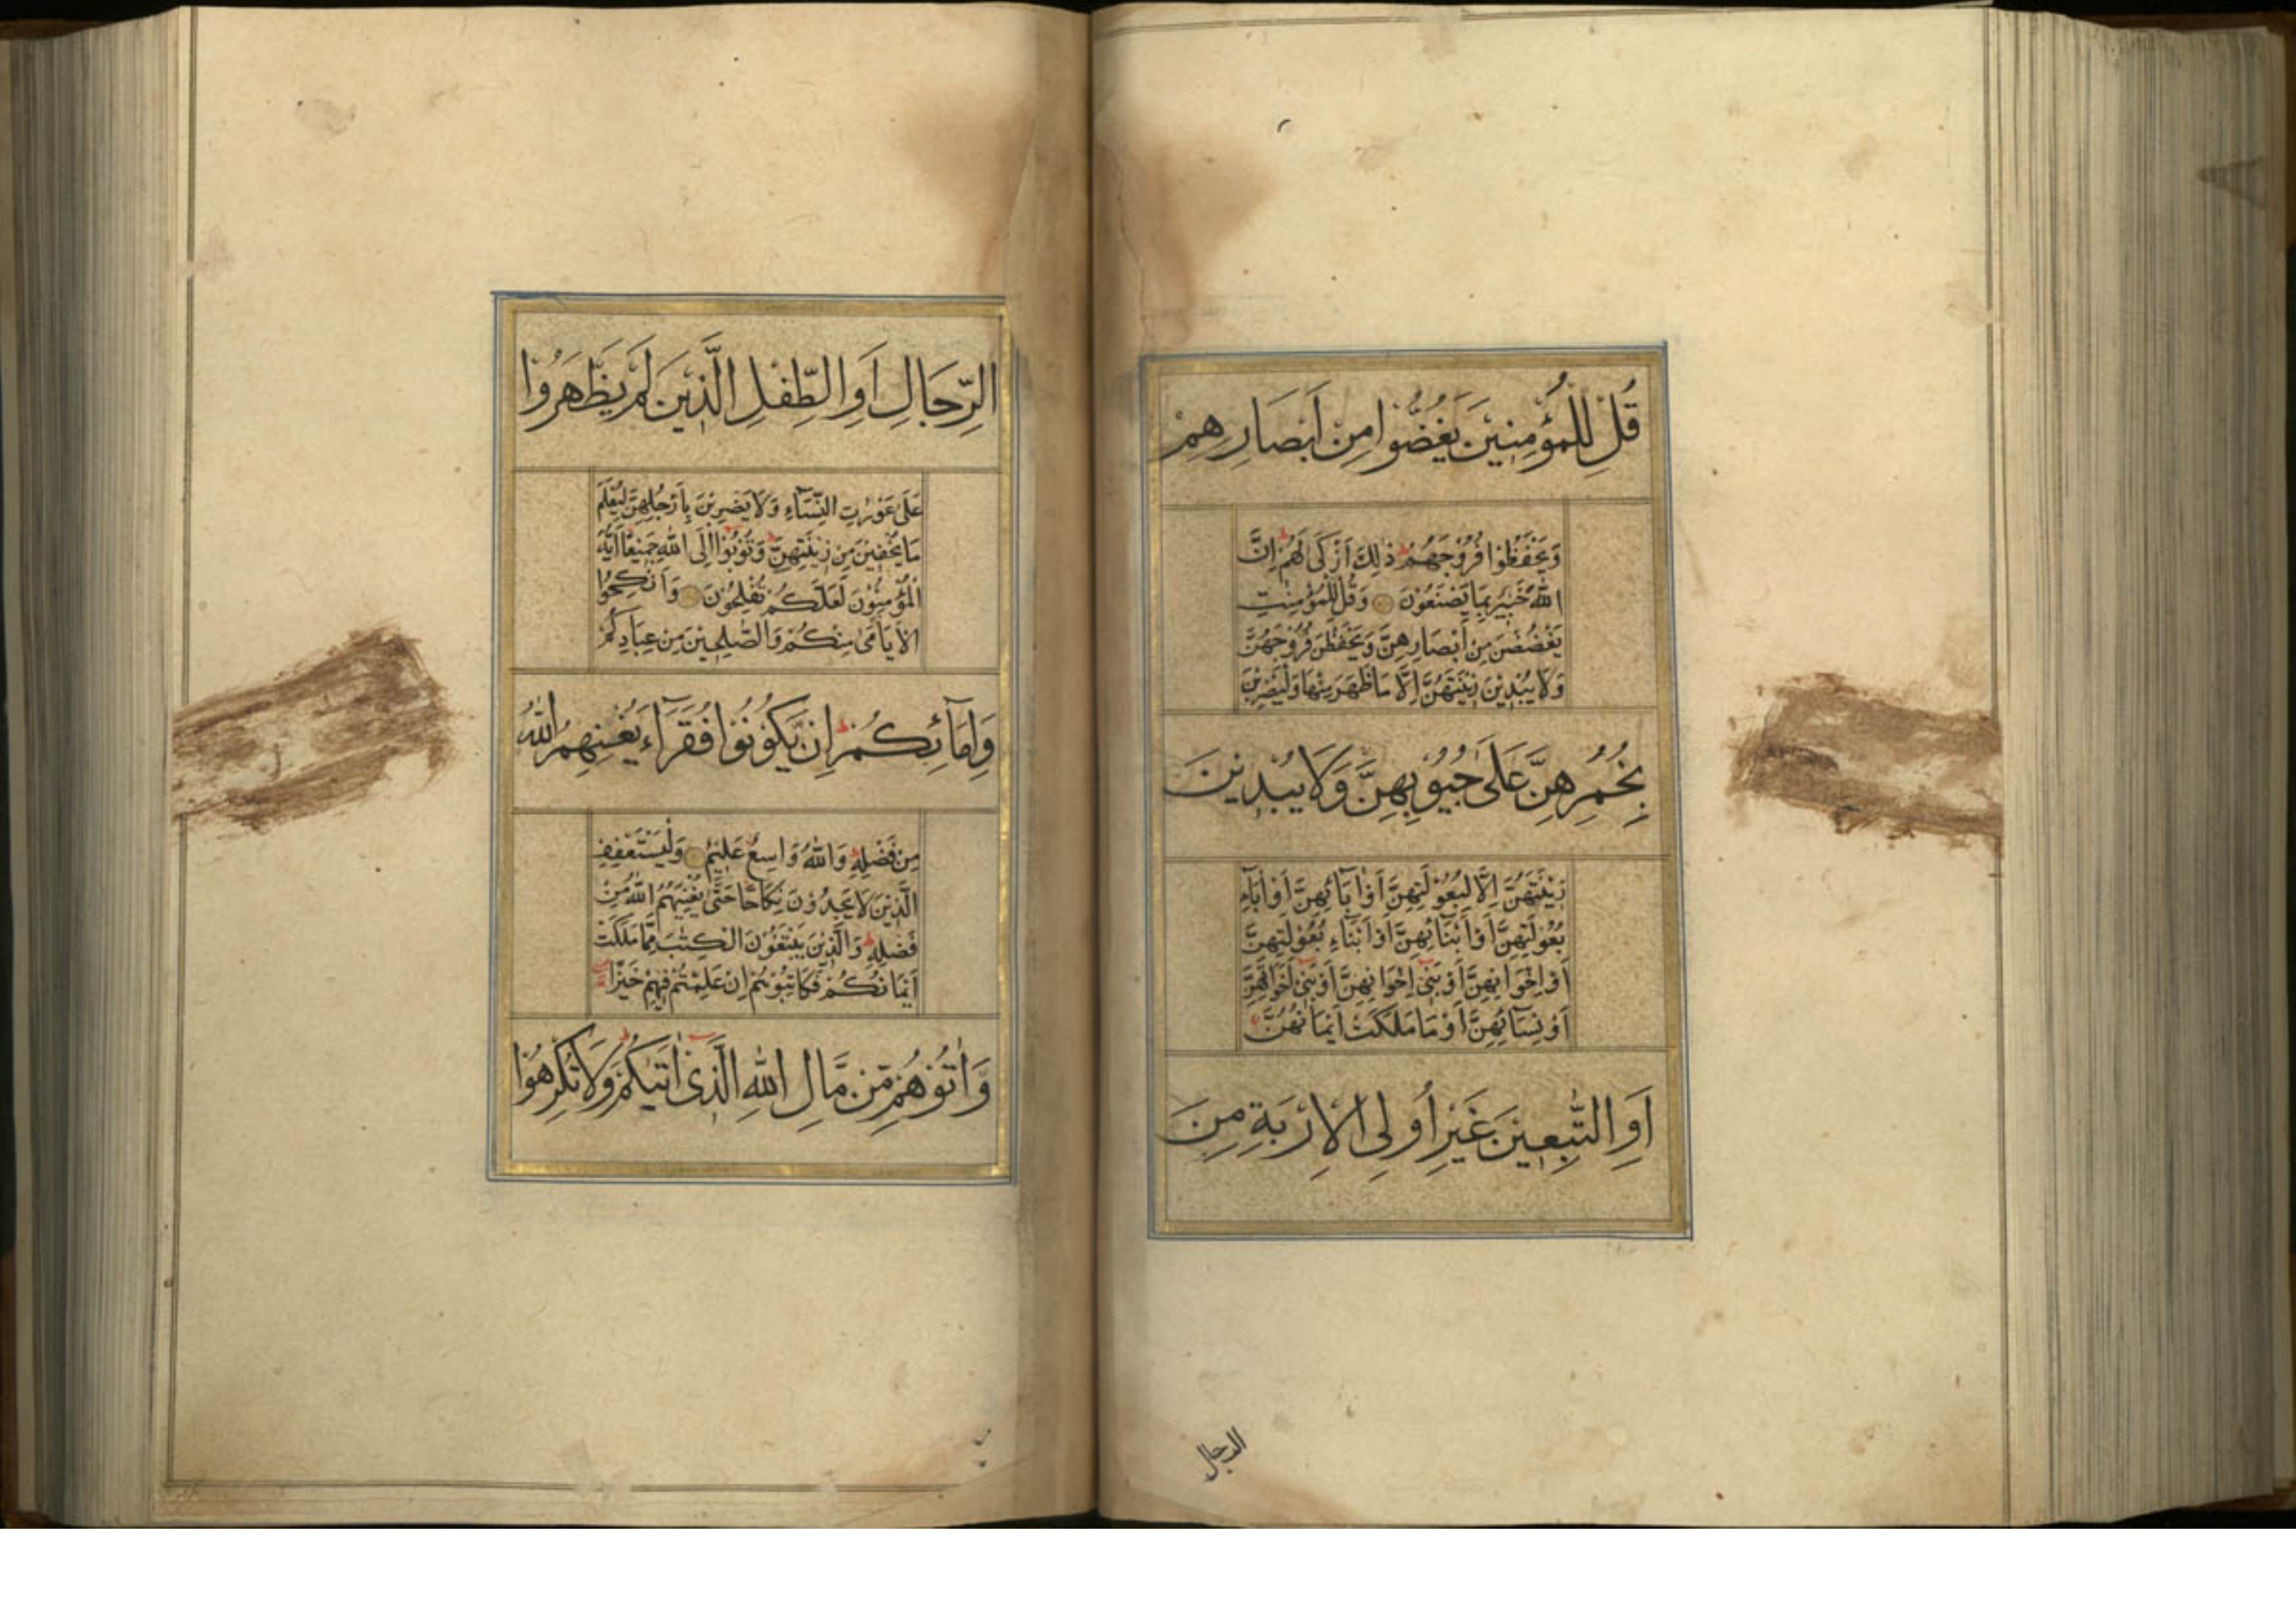 قُلْ لِلْمُؤْمِنِيْنَ يَغُضُّوْا مِنْ اَبْصَارِهِمْ
وَيَحْفَظُوْا فُرُوْجَهُمْ ط ذٰلِكَ اَزْكٰى لَهُمْ ط اِنَّ
اللّٰهَ خَبِيْرٌ بِمَا يَصْنَعُوْنَ وَقُلْ لِلْمُؤْمِنٰتِ
يَغْضُضْنَ مِنْ اَبْصَارِهِنَّ وَيَحْفَظْنَ فُرُوْجَهُنَّ
وَلَا يُبْدِيْنَ زِيْنَتَهُنَّ اِلَّا مَا ظَهَرَ مِنْهَا وَلْيَضْرِبْنَ
بِخُمُرِهِنَّ عَلٰى جُيُوْبِهِنَّ وَلَا يُبْدِيْنَ
زِيْنَتَهُنَّ اِلَّا لِبُعُوْلَتِهِنَّ اَوْ اٰبَائِهِنَّ اَوْ اٰبَآءِ
بُعُوْلَتِهِنَّ اَوْ اَبْنَآئِهِنَّ اَوْ اَبْنَآءِ بُعُوْلَتِهِنَّ
اَوْ اِخْوَانِهِنَّ اَوْ بَنِىْٓ اِخْوَانِهِنَّ اَوْ بَنِىْٓ اَخَوٰتِهِنَّ
اَوْ نِسَآئِهِنَّ اَوْ مَا مَلَكَتْ اَيْمَانُهُنَّ
اَوِ التّٰبِعِيْنَ غَيْرِ اُولِى الْاِرْبَةِ مِنَ
الرجال
الرِّجَالِ اَوِ الطِّفْلِ الَّذِيْنَ لَمْ يَظْهَرُوْا
عَلٰى عَوْرٰتِ النِّسَآءِ وَلَا يَضْرِبْنَ بِاَرْجُلِهِنَّ لِيُعْلَمَ
مَا يُخْفِيْنَ مِنْ زِيْنَتِهِنَّ ط وَتُوْبُوْٓا اِلَى اللّٰهِ جَمِيْعًا اَيُّهَ
الْمُؤْمِنُوْنَ لَعَلَّكُمْ تُفْلِحُوْنَ وَاَنْكِحُوا
الْاَيَامٰى مِنْكُمْ وَالصّٰلِحِيْنَ مِنْ عِبَادِكُمْ
وَاِمَآئِكُمْ ط اِنْ يَّكُوْنُوْا فُقَرَآءَ يُغْنِهِمُ اللّٰهُ
مِنْ فَضْلِهٖ ط وَاللّٰهُ وَاسِعٌ عَلِيْمٌ وَلْيَسْتَعْفِفِ
الَّذِيْنَ لَا يَجِدُوْنَ نِكَاحًا حَتّٰى يُغْنِيَهُمُ اللّٰهُ مِنْ
فَضْلِهٖ ط وَالَّذِيْنَ يَبْتَغُوْنَ الْكِتٰبَ مِمَّا مَلَكَتْ
اَيْمَانُكُمْ فَكَاتِبُوْهُمْ اِنْ عَلِمْتُمْ فِيْهِمْ خَيْرًا
وَّاٰتُوْهُمْ مِّنْ مَّالِ اللّٰهِ الَّذِىْٓ اٰتٰىكُمْ ط وَلَا تُكْرِهُوْا